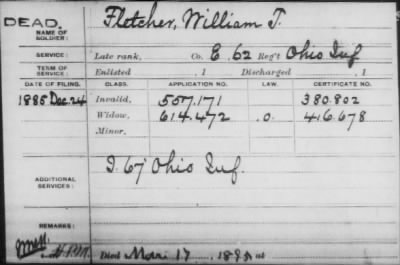 DEAD.
NAME OF SOLDIER: Fletcher, William T.
SERVICE: Late rank, Co. E. 62 Reg't Ohio Inf
TERM OF SERVICE: Enlisted , 1 Discharged , 1
DATE OF FILING. CLASS. APPLICATION NO. LAW. CERTIFICATE NO.
1885 Dec. 24 Invalid, 557.171 380.802
Widow, 614.472 .o. 416.678
Minor,
ADDITIONAL SERVICES: I. 67 Ohio Inf.
REMARKS:
Died Mar 17